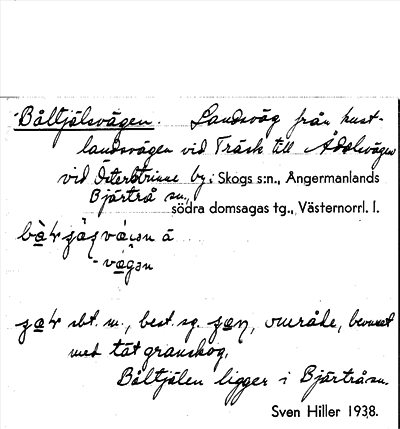 Båltjälsvägen. Landsväg från kust-
landsvägen vid Träsk till Ådalsvägen
vid Österstrinne by; Skogs s:n., Ångermanlands
Bjärtrå sn., södra domsagas tg., Västernorrl. l.
sbt. m., best. sg. område, bevuxet
med tät granskog.
Båltjälen ligger i Bjärtrå sn.
Sven Hiller 1938.